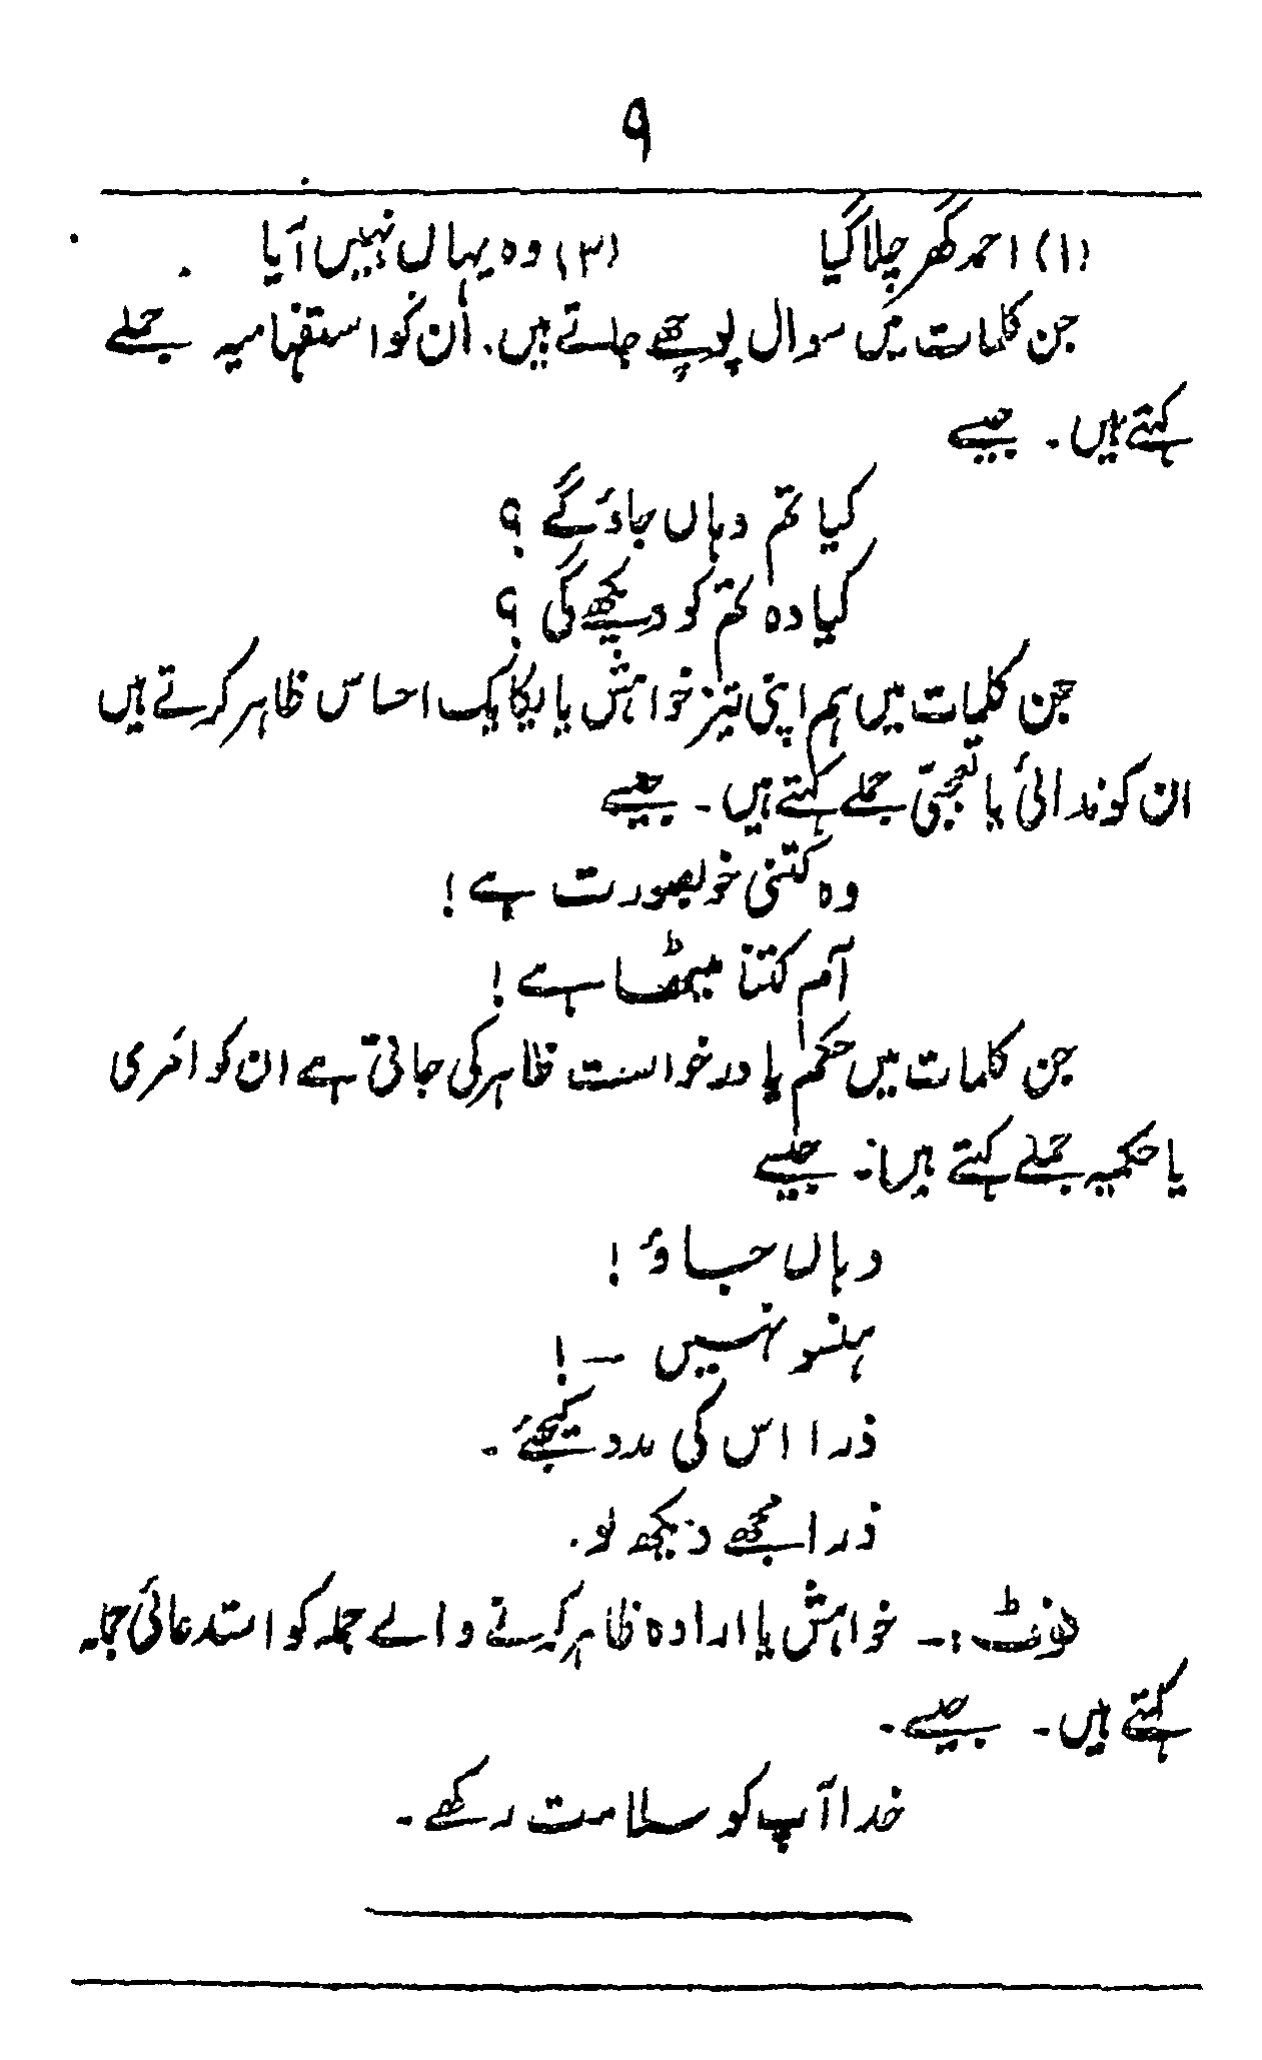 ۹
(۱) احمد گھر چلا گیا (۳) وہ یہاں نہیں آیا
جن کلمات میں سوال پوچھے جاتے ہیں۔ اُن کو استفہامیہ جملے
کہتے ہیں۔ جیسے
کیا تم وہاں جاؤ گے ؟
کیا وہ تم کو دیکھے گی ؟
جن کلمات میں ہم اپنی تیز خواہش یا یکایک احساس ظاہر کرتے ہیں
ان کو ندائی یا تعجبّی جملے کہتے ہیں۔ جیسے
وہ کتنی خوبصورت ہے !
آم کتنا میٹھا ہے !
جن کلمات میں حکم یا درخواست ظاہر کی جاتی ہے ان کو امَری
یا حکمیہ جملے کہتے ہیں:۔ جیسے
وہاں جاؤ !
ہنسو نہیں — !
ذرا اس کی مدد کیجئے۔
ذرا مجھے دیکھ لو۔
نوٹ :۔ خواہش یا ارادہ ظاہر کرنے والے جملہ کو استدعائی جملہ
کہتے ہیں۔ جیسے۔
خدا آپ کو سلامت رکھے۔